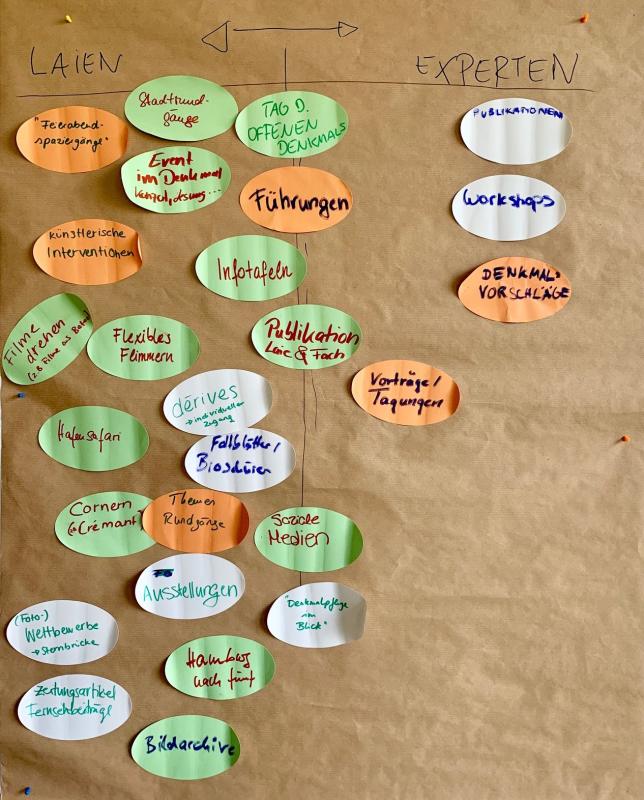 LAIEN
EXPERTEN
Stadtrund-
gänge
TAG D.
OFFENEN
DENKMALS
PUBLIKATIONEN
"Feierabend-
spaziergänge"
Event
im Denkmal
Führungen
Workshops
künstlerische
Interventionen
Infotafeln
DENKMAL-
VORSCHLÄGE
Filme
drehen
(z.B Filme als
Flexibles
Flimmern
Publikation
Laie & Fach
Vorträge/
Tagungen
dérives
→ individueller
Zugang
Hafensafari
Faltblätter/
Broschüren
Cornern
Crémant
Themen
Rundgänge
Soziale
Medien
Ausstellungen
"Denkmalpflege
im
Blick"
(Foto-)
Wettbewerbe
→ Sternbrücke
Hamburg
nach fünf
Zeitungsartikel
Fernsehbeiträge
Bildarchive